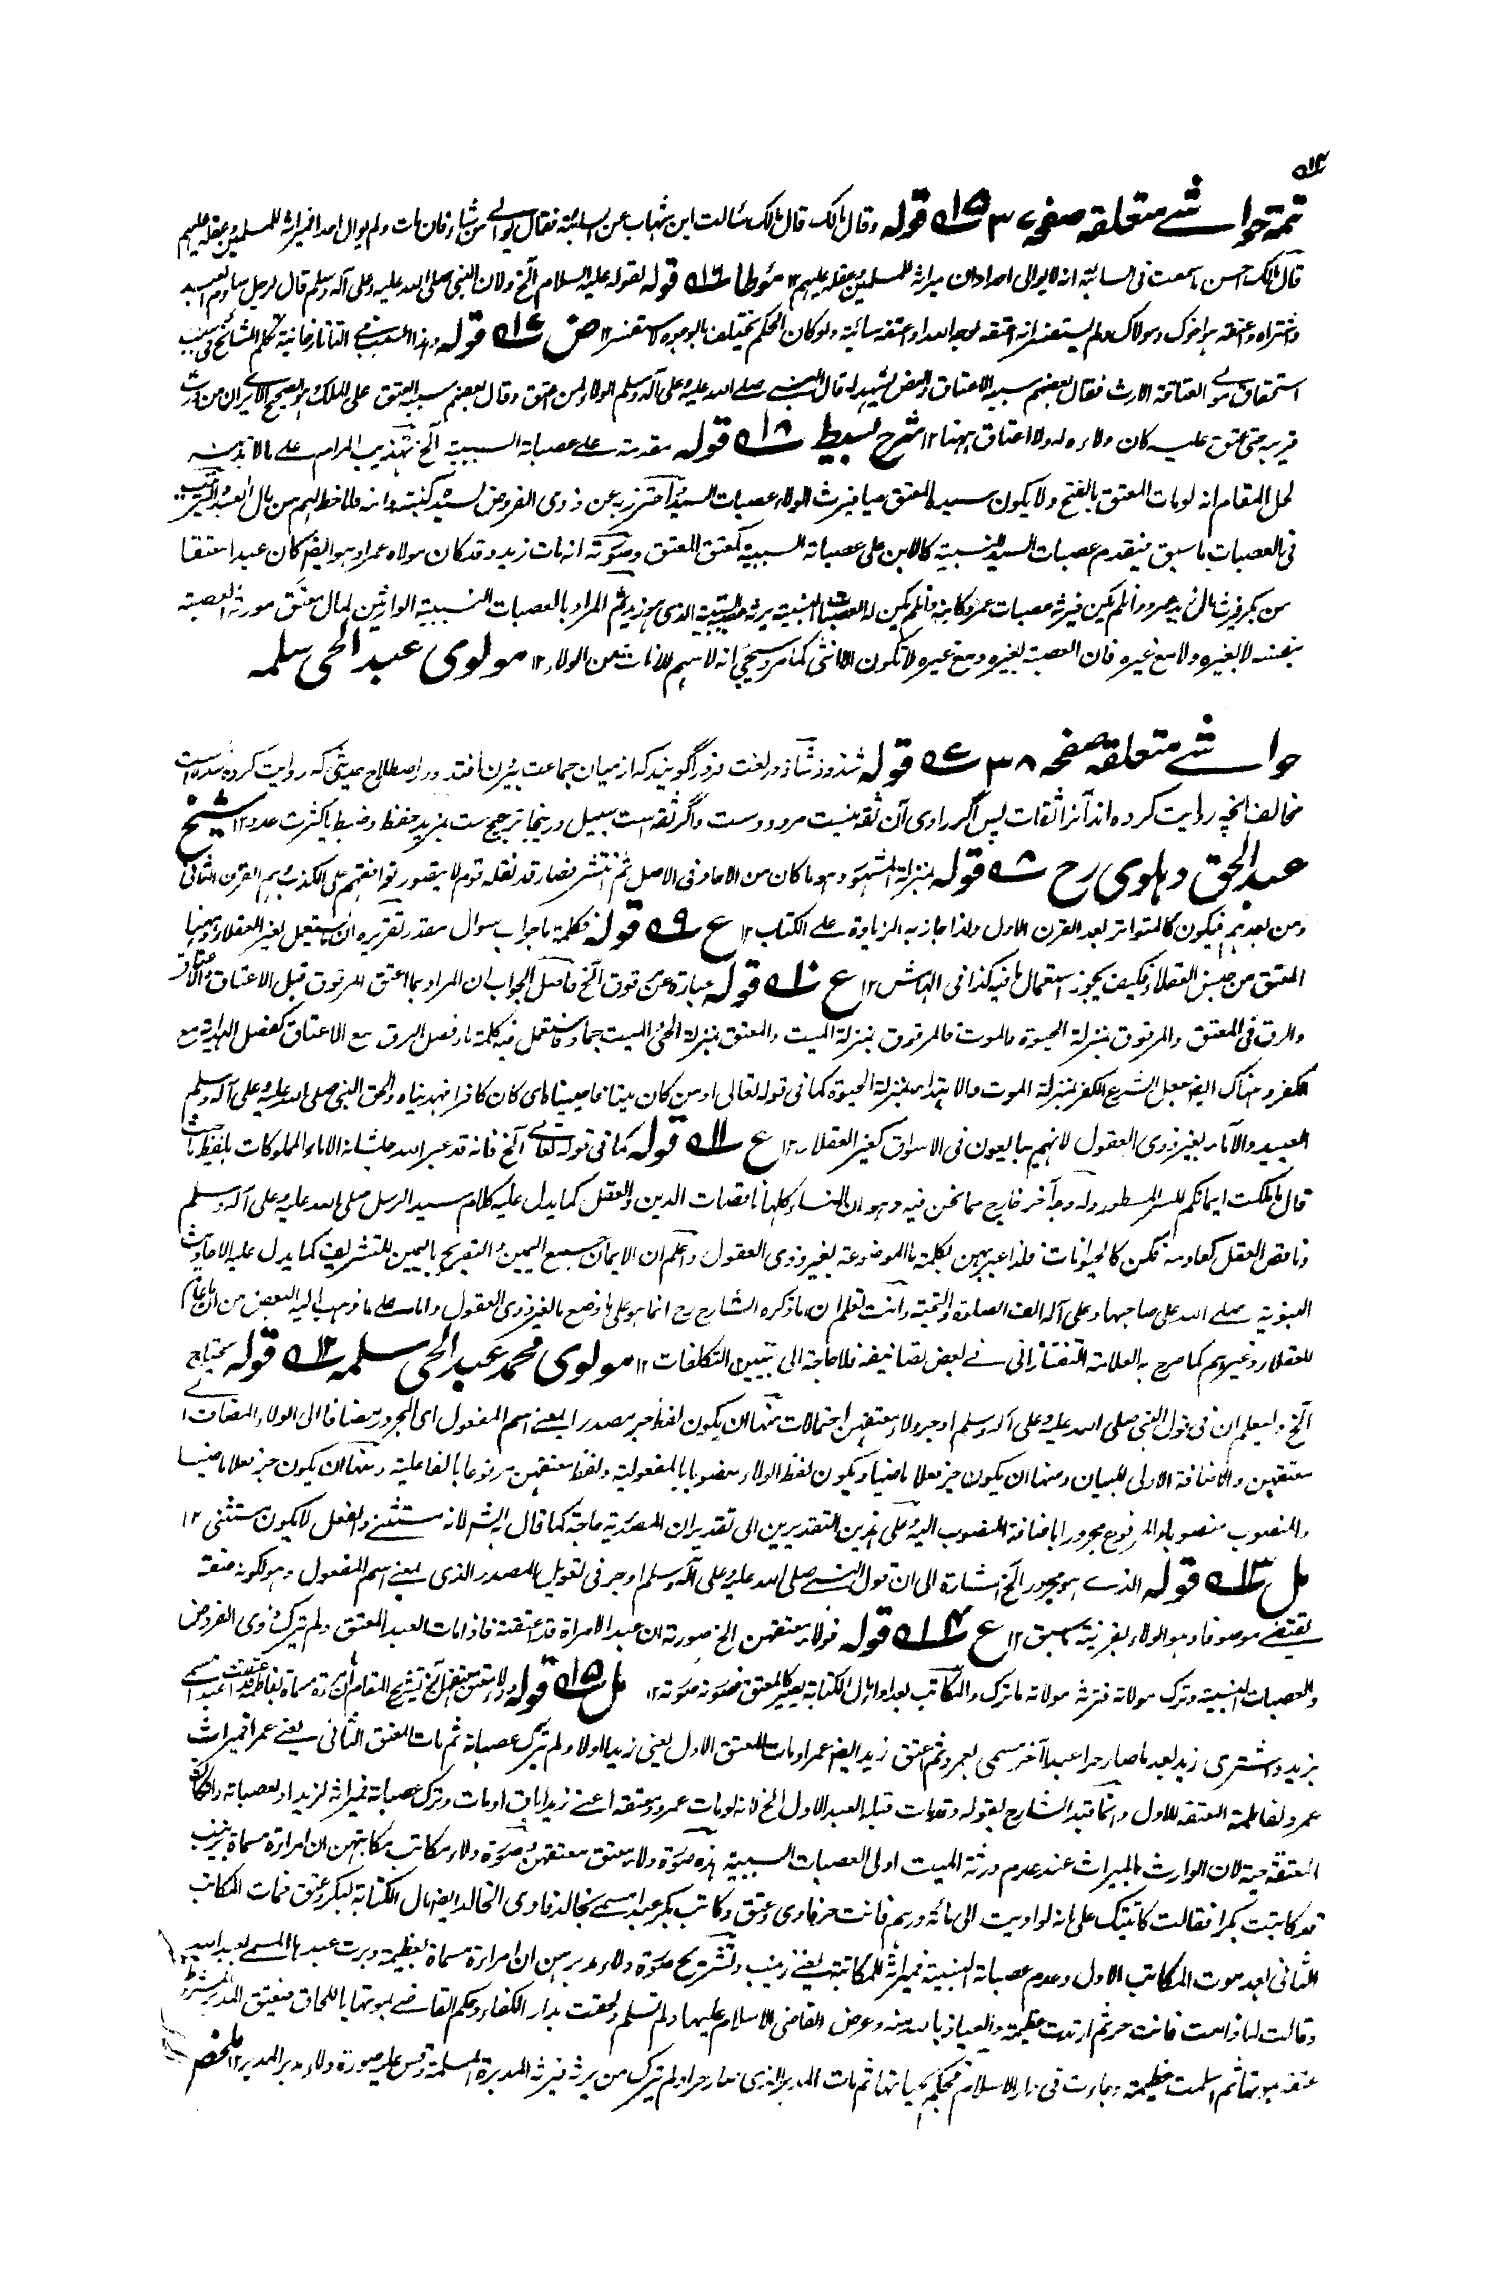 تتمة حواشے متعلقہ صفحہ ٣٧ ١٥ قوله وقال مالك قال مالك سألت ابن شهاب عن السائبة فقال يوالي من شاء فان مات ولم يوال احدا فميراثه للمسلمين وعقله عليهم
قال مالك احسن ما سمعت في السائبة انه لا يوالى احدا وان ميراثه للمسلمين وعقله عليهم ١٢ مؤطا ١٦ قوله لقوله عليه السلام الخ ولان النبي صلى الله عليه وعلى آله وسلم قال لرجل
واشتراه واعتقه هو اخوك ومولاك ولم يستفسر انه اعتقه لوجه الله او اعتقه سائبة ولو كان الحكم يختلف بالوجوه لاستفسر ١٢ ض ١٧ قوله وهذا السبب في التاتارخانية تكلم المشائخ في سبب
استحقاق مولى العتاقة الارث فقال بعضهم سببه الاعتاق والنص يشهد له قال النبي صلے الله عليه وعلى آله وسلم الولاء لمن اعتق وقال بعضهم سببه العتق على الملك وهو الصحيح الا يرى ان من ورث
قريبه حتى عتق عليه كان ولاءه له ولا اعتاق ههنا ١٢ شرح بسيط ١٨ قوله مقدمة على عصباته السببية الخ تهذيب المرام على ما
لحل المقام انه لو مات المعتق بالفتح ولا يكون سيده المعتق حيا فيرث الولاء عصبات السيد احترز به عن ذوى الفروض لسيده كبنته وانه فلا حظ لهم من مال العبد
في العصبات ما سبق فيقدم عصبات السيد النسبية كالابن على عصباته السببية كمعتق المعتق وصورته انه مات زيد وقد كان مولاه عمرا وهو ايضا كان عبدا معتقا
من بكر فيرث مال زيد عمرو وان لم يكن فيرث عصبات عمرو كابنه وان لم يكن له العصبات النسبية يرثه الذي هو زيد ثم المراد بالعصبات النسبية الوارثين لمال معتق مورثه العصبة
بنفسه لا بغيره ولا مع غيره فان العصبة بغيره ومع غيره لا تكون الا انثى كما مر وسيجئ انه لا سهم للاناث من الولاء ١٢ مولوى عبدالحى سلمه
حواشے متعلقہ صفحہ ٣٨ ٧ قوله شذوذ شاذ در لغت فرد را گويند كه از ميان جماعت بيرون افتد و در اصطلاح حديثى كه روايت كرده شده است
مخالف انچه روايت كرده اند آنرا ثقات پس اگر راوى آن ثقه نيست مردود ست واگر ثقه است سبيل درينجا ترجيح ست بمزيد حفظ وضبط يا كثرت عدد ١٢ شيخ
عبدالحق دہلوى رح ٨ قوله بمنزلة المشهور وهو ما كان من الآحاد في الاصل ثم انتشر فصار قد نقله قوم لا يتصور توافقهم على الكذب وهم القرن الثاني
ومن بعدهم فيكون كالمتواتر بعد القرن الاول ولذا جاز به الزيادة على الكتاب ١٢ ع ٩ قوله فكلمة ما جواب سوال مقدر تقريره ان ما يستعمل لغير العقلاء وههنا
المعتق من جنس العقلاء فكيف يجوز استعمال ما فيه كذا في الهامش ١٢ ع ١٠ قوله عبارة عن مرقوق الخ حاصل الجواب ان المراد بما اعتق المرقوق قبل الاعتاق والاعتاق
والرق في المعتق والمرقوق بمنزلة الحيوة والموت فالمرقوق بمنزلة الميت والمعتق بمنزلة الحي والميت جماد فيستعمل فيه كلمة ما وفصل الرق مع الاعتاق كفصل الهداية مع
الكفر وهناك ايضا جعل الشرع الكفر بمنزلة الموت والاهتداء بمنزلة الحيوة كما في قوله تعالى او من كان ميتا فاحييناه اى كان كافرا فهديناه والحق النبي صلى الله عليه وعلى آله وسلم
العبيد والاماء بغير ذوى العقول لانهم يباعون في الاسواق كغير العقلاء ١٢ ع ١١ قوله كما في قوله تعالى الخ فانه قد عبر الله جل شانه الاماء المملوكات بلفظ ما حيث
قال ما ملكت ايمانكم للسر المسطور وله وجه آخر خارج مما نحن فيه وهو ان النساء كلها ناقصات الدين والعقل كما يدل عليه كلام سيد الرسل صلى الله عليه وعلى آله وسلم
وناقص العقل كعادمه فكن كالحيوانات فلذا عبر بهن بكلمة ما الموضوعة لغير ذوى العقول واعلم ان الايمان جمع اليمين والتصريح باليمين للتشريف كما يدل عليه الاحاديث
النبوية صلے الله على صاحبها وعلى آله الف الصلوة والتحية وانت تعلم ان ما ذكره الشارح رح انما هو على ما وضع ما لغير ذوى العقول واما على ما ذهب اليه البعض من ان ما عام
للعقلاء وغيرهم كما صرح به العلامة التفتازاني في بعض تصانيفه فلا حاجة الى تبيين التكلفات ١٢ مولوى محمد عبدالحى سلمه ١٢ قوله يحتاج
الخ وليعلم ان في قول النبي صلى الله عليه وعلى آله وسلم او جر ولاء معتقهن احتمالات منها ان يكون لفظ جر مصدرا بمعنے اسم المفعول اى المجرور مضافا الى الولاء المضاف الى
معتقهن والاضافة الاولى للبيان ومنها ان يكون جر فعلا ماضيا ويكون لفظ الولاء منصوبا بالمفعولية ولفظ معتقهن مرفوعا بالفاعلية ومنها ان يكون جر فعلا ماضيا
والمنصوب منصوبا والمرفوع مجرورا باضافة المنصوب اليه وعلى هذين التقديرين الى تقدير ان المصدرية حاجة كما قال به الشم لانه مستثنى والفعل لا يكون مستثنى ١٢
مل ١٣ قوله الذى هو مجرور الخ اشارة الى ان قول النبي صلى الله عليه وعلى آله وسلم او جر في تاويل المصدر الذى بمعنے اسم المفعول وهو لكونه صفة
يقتضے موصوفا وهو الولاء بقرينة ما سبق ١٢ ع ١٤ قوله فولاء معتقهن الخ صورته ان عبدا لامراة قد اعتقته فاذا مات العبد المعتق ولم يترك ذوى الفروض
والعصبات النسبية وترك مولاته فترثه مولاته ما ترك والمكاتب بعد اداء مال الكتابة يصير كالمعتق فصورته صورته ١٢ مل ١٥ قوله ولاء معتق معتقهن الخ تشريح المقام ان امرأة مسماة بفاطمة قد اعتقت عبدا سمي
بزيد واشترى زيد بعد ما صار حرا عبدا آخر مسمى بعمرو ثم اعتق زيد ايضا عمرا ومات المعتق الاول يعنى زيدا اولا ولم يترك عصباته ثم مات المعتق الثانى يعنے عمرا فميراث
عمرو لفاطمة المعتقة للاول وانما قيد الشارح بقوله وقد مات قبله العبد الاول الخ لانه لو مات عمرو ومعتقه اعنے زيدا باق او مات وترك عصباته فميراثه لزيد او لعصباته وان كانت
المعتقة حية لان الوارث بالميراث عند عدم ورثة الميت اولى العصبات السببية هذه صورة ولاء معتق معتقهن وصورة ولاء مكاتب مكاتبهن ان امرأة مسماة بزينب
قد كاتبت بكرا فقالت كاتبتك على انه لو اديت الى مائة درهم فانت حر فادى وعتق وكاتب بكر عبدا سمي بخالد فادى الخالد ايضا مال الكتابة لبكر وعتق فمات المكاتب
الثانى بعد موت المكاتب الاول وعدم عصباته النسبية فميراثه للمكاتبة يعنے زينب وتشريح صورة ولاء مدبرهن ان امرأة مسماة بعظيمة دبرت عبدها المسمى بعبدالله
وقالت له اذا مت فانت حر ثم ارتدت عظيمة والعياذ بالله منه وعرض القاضى الاسلام عليها ولم تسلم ولحقت بدار الكفار وحكم القاضى بموتها باللحاق فعتق المدبر
عتقه بموتها ثم اسلمت عظيمة وجاءت في دار الاسلام فحكم بحياتها ثم مات المدبر الذى صار حرا ولم يترك من يرثه فيرثه المدبرة المسلمة وقس عليه صورة ولاء مدبر المدبر ١٢ ملخص